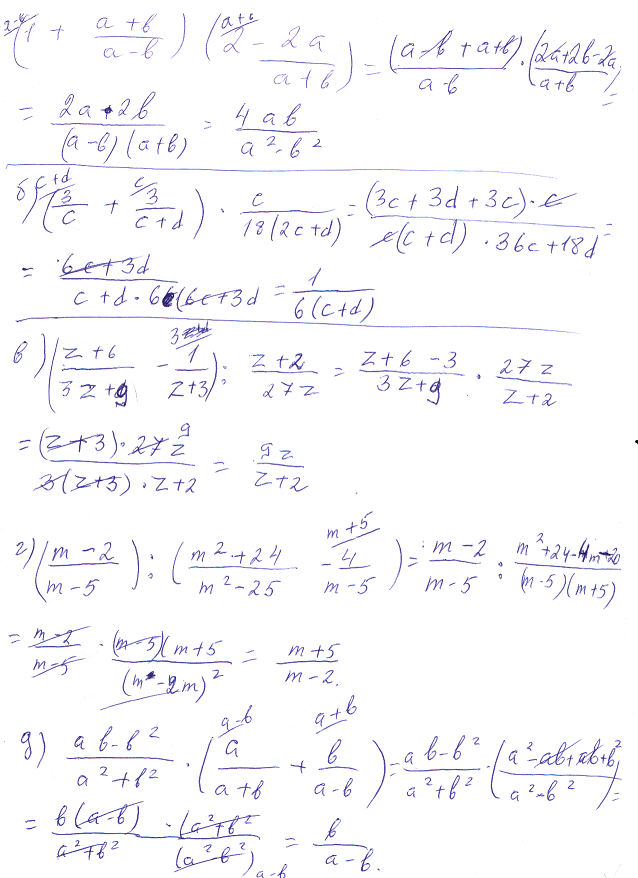 (1 + (a+b)/(a-b)) (2 - 2a/(a+b)) = (a-b+a+b)/(a-b) · (2a+2b-2a)/(a+b) =
= (2a·2b)/((a-b)(a+b)) = 4ab/(a²-b²)
б) (3/c + 3/(c+d)) · c/(18(2c+d)) = ((3c+3d+3c)·c)/(c(c+d)·36c+18d) =
= (6c+3d)/(c+d·6(6c+3d) = 1/(6(c+d))
в) ((z+6)/(3z+9) - 1/(z+3)) : (z+2)/(27z) = (z+6-3)/(3z+9) · 27z/(z+2)
= ((z+3)·27z)/(3(z+3)·z+2) = 9z/(z+2)
г) ((m-2)/(m-5)) : ((m²+24)/(m²-25) - 4/(m-5)) = (m-2)/(m-5) : (m²+24-4m-20)/((m-5)(m+5))
= (m-2)/(m-5) · ((m-5)(m+5)/(m-2m)² = (m+5)/(m-2).
д) (ab-b²)/(a²+b²) · (a/(a+b) + b/(a-b)) = (ab-b²)/(a²+b²) · (a²-ab+ab+b²)/(a²-b²) =
= b(a-b)/(a²+b²) · (a²+b²)/(a²-b²) = b/(a-b).